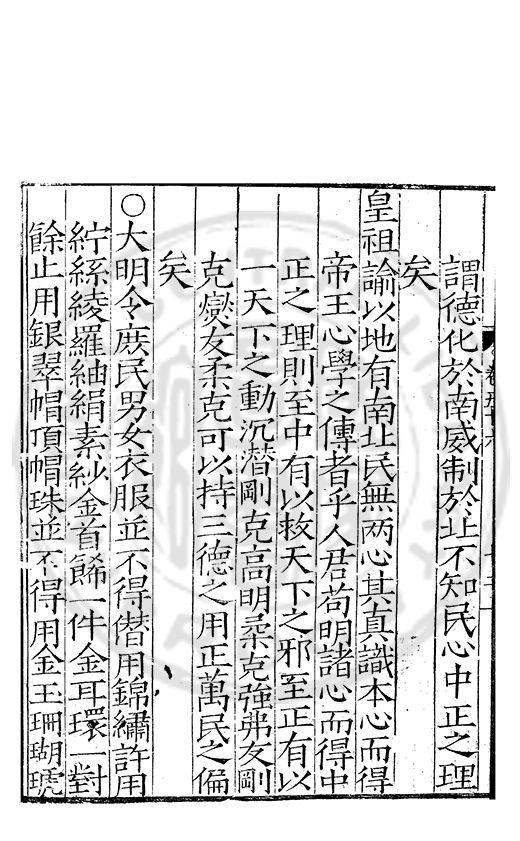 謂德化於南威制於北不知民心中正之理
矣
皇祖諭以地有南北民無两心其真識本心而得
帝王心學之傳者乎人君苟明諸心而得中
正之理則至中有以救天下之邪至正有以
一天下之動沉潛剛克高明柔克強弗友剛
克燮友柔克可以持三德之用正萬民之偏
矣
○大明令庶民男女衣服並不得僣用錦繡許用
紵絲綾羅紬絹素紗金首餙一件金耳環一對
餘止用銀翠帽頂帽珠並不得用金玉珊瑚琥